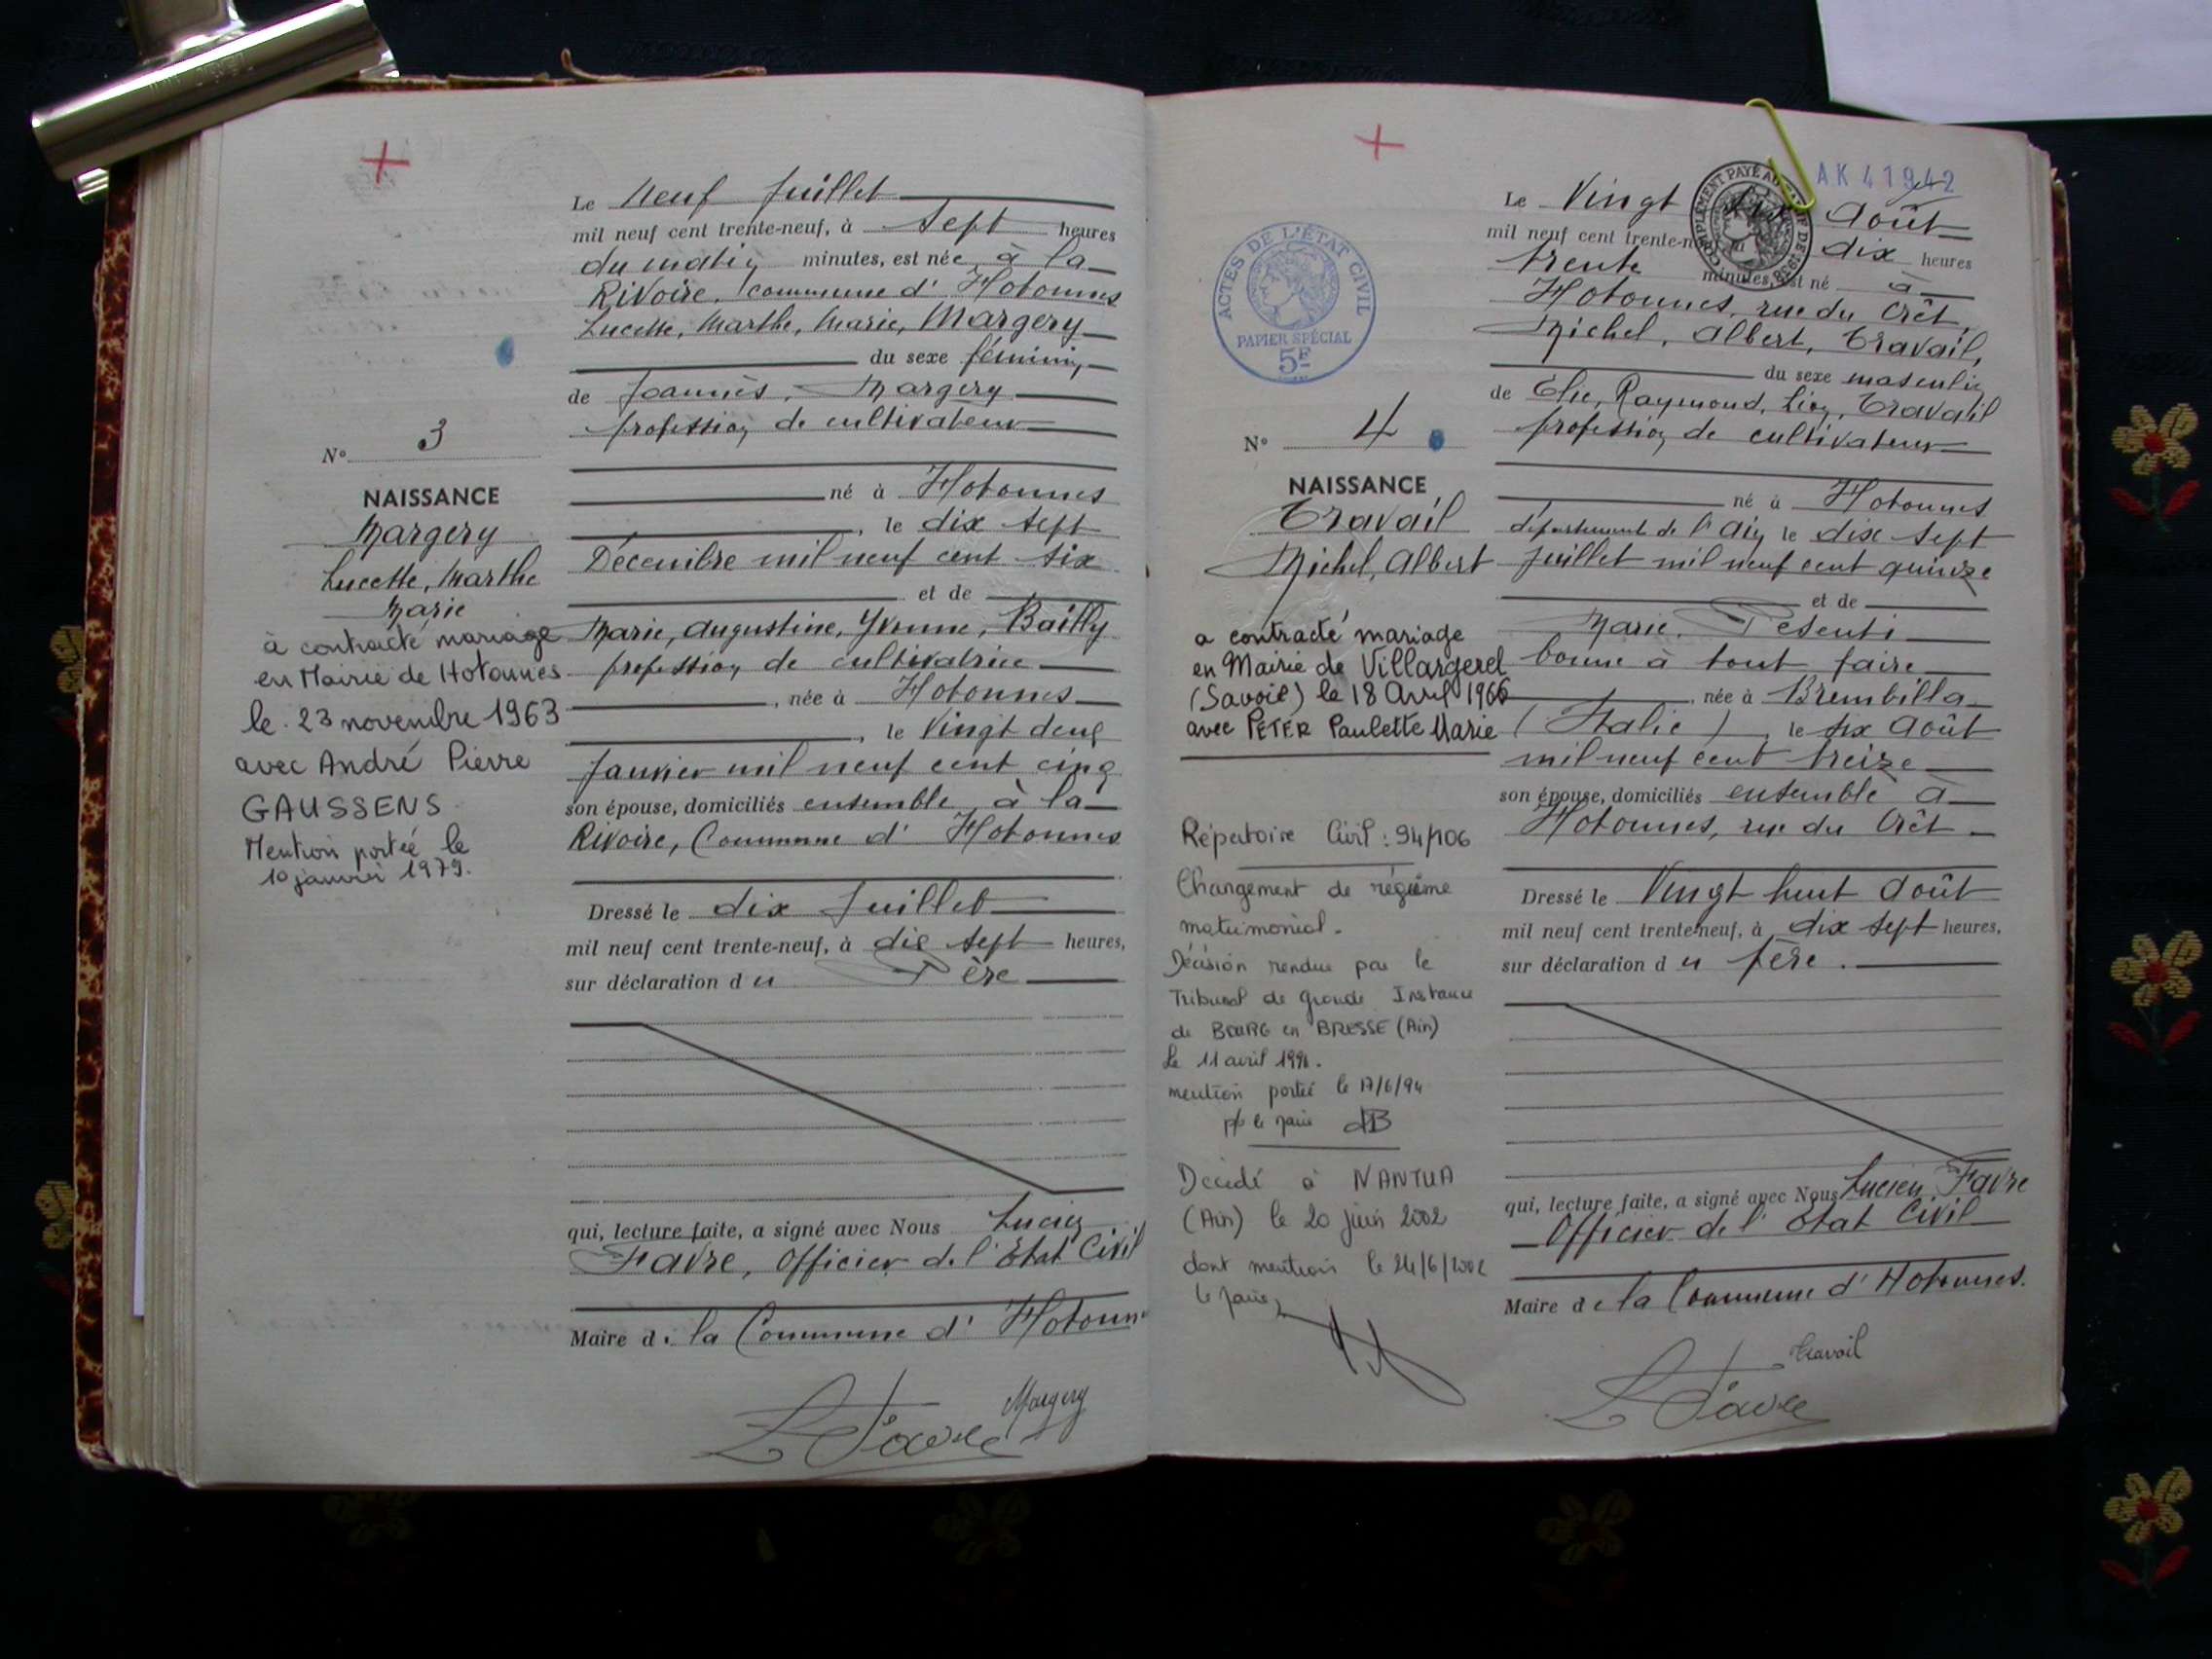 Le Neuf Juillet
mil neuf cent trente-neuf, à Sept heures
du matin minutes, est née, à la
Rivoire, commune d' Hotonnes
Lucette, Marthe, Marie, Margery
du sexe féminin,
de Joannès, Margery
profession de cultivateur
né à Hotonnes
, le dix sept
Décembre mil neuf cent six
et de
Marie, Augustine, Yvonne, Bailly
profession de cultivatrice
, née à Hotonnes
, le Vingt deux
Janvier mil neuf cent cinq
son épouse, domiciliés ensemble, à la
Rivoire, Commune d' Hotonnes
Dressé le dix Juillet
mil neuf cent trente-neuf, à dix sept heures,
sur déclaration du Père
qui, lecture faite, a signé avec Nous Lucien
Favre, Officier de l'Etat Civil
Maire de la Commune d'
Margery
L Favre
N° 3
NAISSANCE
Margery
Lucette, Marthe
Marie
à contracté mariage
en Mairie de Hotonnes
le 23 novembre 1963
avec André Pierre
GAUSSENS
Mention portée le
10 janvier 1979.
AK 41942
COMPLÉMENT PAYÉ
Le Vingt Août
mil neuf cent trente-neuf, à dix heures
trente minutes, est né à
Hotonnes, rue du Crêt,
Michel, Albert, Travail,
du sexe masculin
de Elie, Raymond, Léon, Travail
profession de cultivateur
né à Hotonnes
département de l'Ain, le dix sept
Juillet mil neuf cent quinze
et de
Marie, Pesenti
bonne à tout faire
, née à Brembilla
(Italie), le six Août
mil neuf cent treize
son épouse, domiciliés ensemble à
Hotonnes, rue du Crêt
Dressé le Vingt huit Août
mil neuf cent trente-neuf, à dix sept heures,
sur déclaration du père.
qui, lecture faite, a signé avec Nous Lucien Favre
Officier de l'Etat Civil
Maire de la Commune d'Hotonnes.
Travail
L Favre
ACTES DE L'ÉTAT CIVIL
PAPIER SPÉCIAL
5F
N° 4
NAISSANCE
Travail
Michel, Albert
a contracté mariage
en Mairie de Villargerel
(Savoie) le 18 Avril 1966
avec PETER Paulette Marie
Répertoire Civil : 94/106
Changement de régime
matrimonial.
Décision rendue par le
Tribunal de Grande Instance
de BOURG en BRESSE (Ain)
le 11 avril 1994.
mention portée le 17/6/94
p/o le Maire
Décédé à NANTUA
(Ain) le 20 juin 2002
dont mention le 24/6/2002
le Maire,